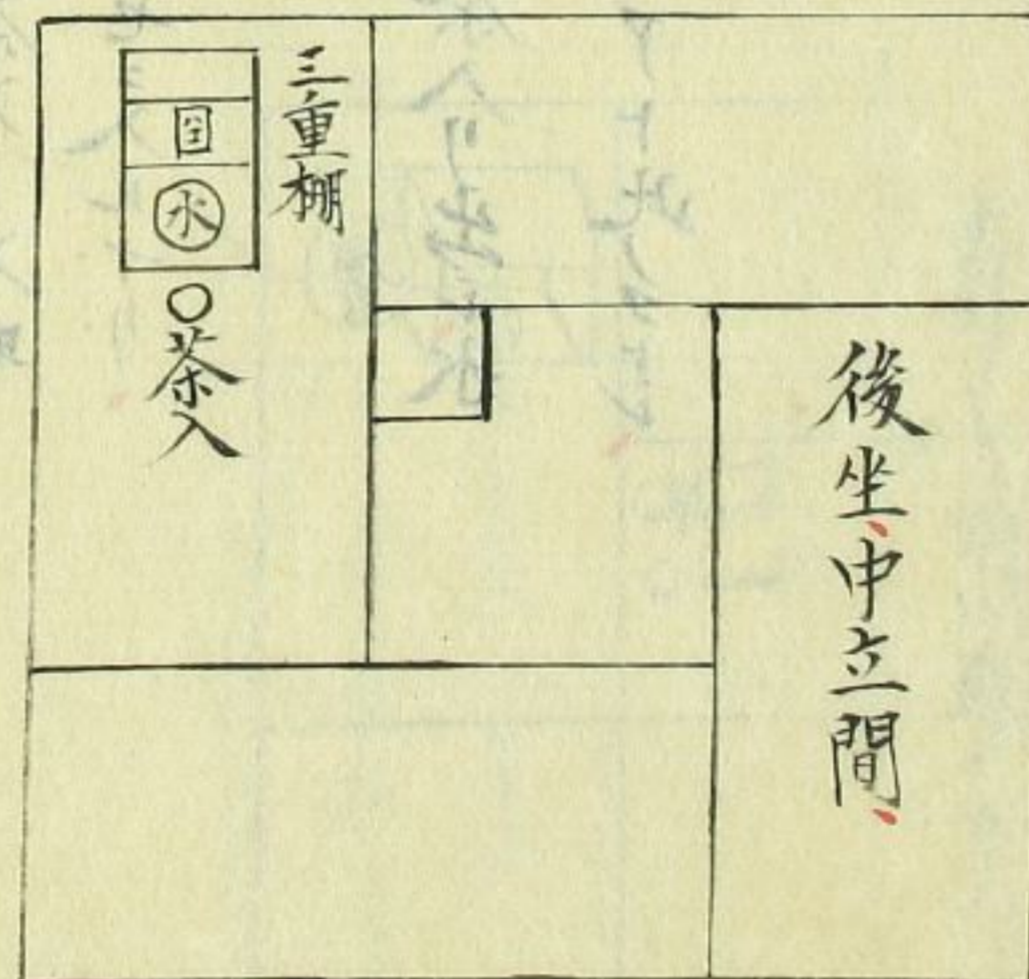 後坐、中立間、
三重棚
水
○茶入